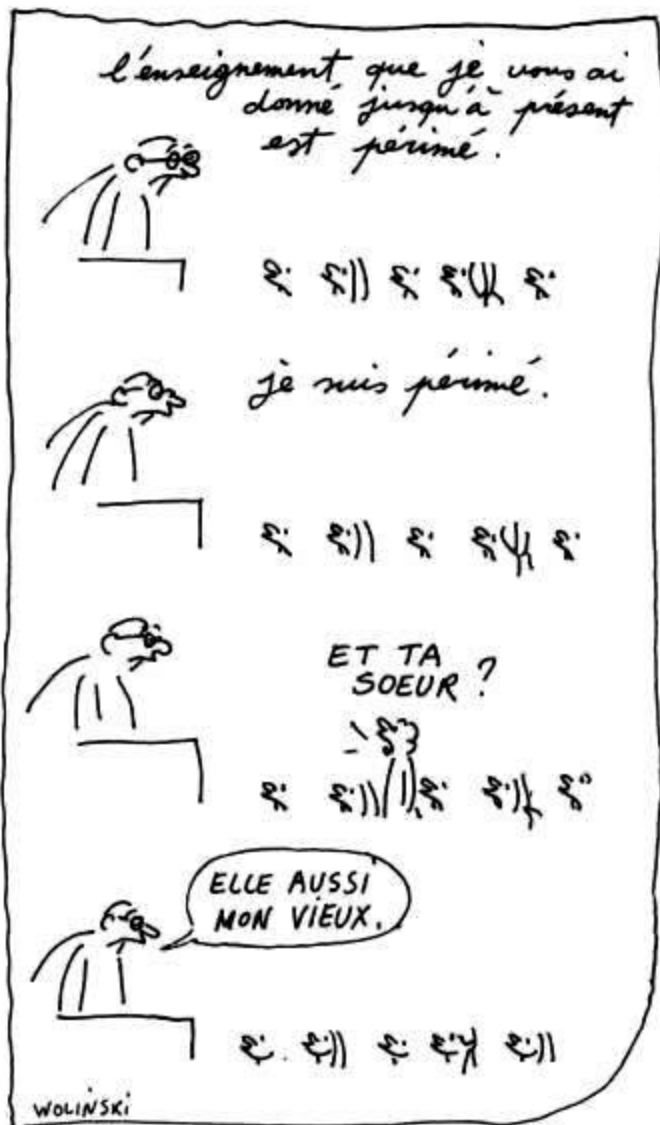 l'enseignement que je vous ai
donné jusqu'à présent
est périmé.
je suis périmé.
ET TA
SOEUR ?
ELLE AUSSI
MON VIEUX.
WOLINSKI